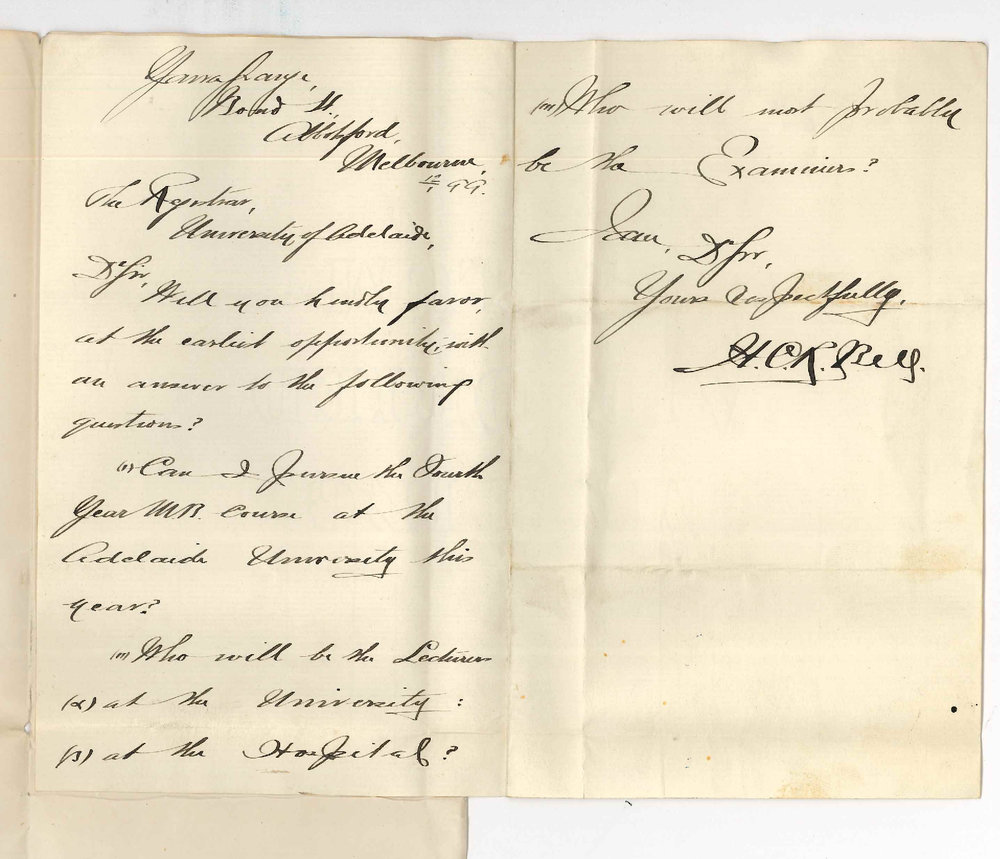 Yarra Grange,
Bond St,
Abbotsford,
Melbourne,
12/1 99.
The Registrar,
University of Adelaide,
Dr Sir,
Will you kindly favor,
at the earliest opportunity, with
an answer to the following
questions?
(I) Can I pursue the Fourth
Year M.B. course at the
Adelaide University this
year?
(II) Who will be the Lecturers
(α) at the University :
(β) at the Hospital?
(III) Who will most probably
be the Examiners?
I am, Dr Sir,
Yours respectfully,
H.C.R. Bell.